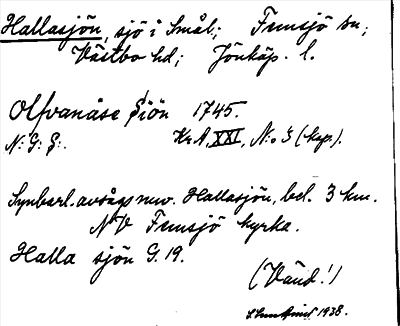 Hallasjön, sjö i Smål; Femsjö sn;
Västbo hd; Jönköp. l.
Olfvanäse Siön 1745.
N: G: G:. Kr. A, XXI, N:o 5 (kop.).
Synbarl. avsågs nuv. Hallasjön, bel. 3 km.
N V Femsjö kyrka.
Halla sjön G. 19.
(Vänd!)
1938.